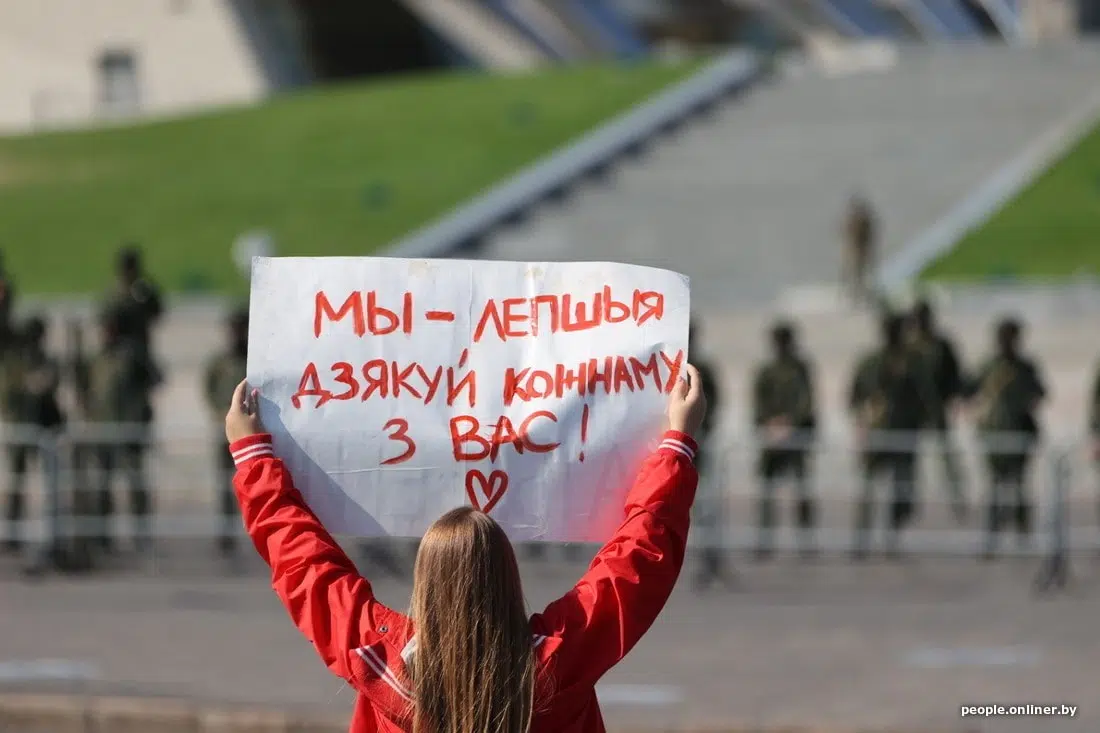 МЫ - ЛЕПШЫЯ
ДЗЯКУЙ КОЖНАМУ
З ВАС!
people.onliner.by